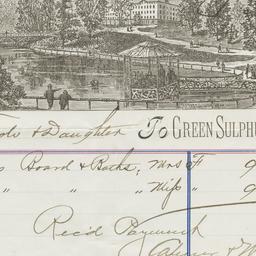 & Daughter To GREEN SULPHU
Board & Baths, Mrs F 9
" " " Miss " 9
Rec'd Payment